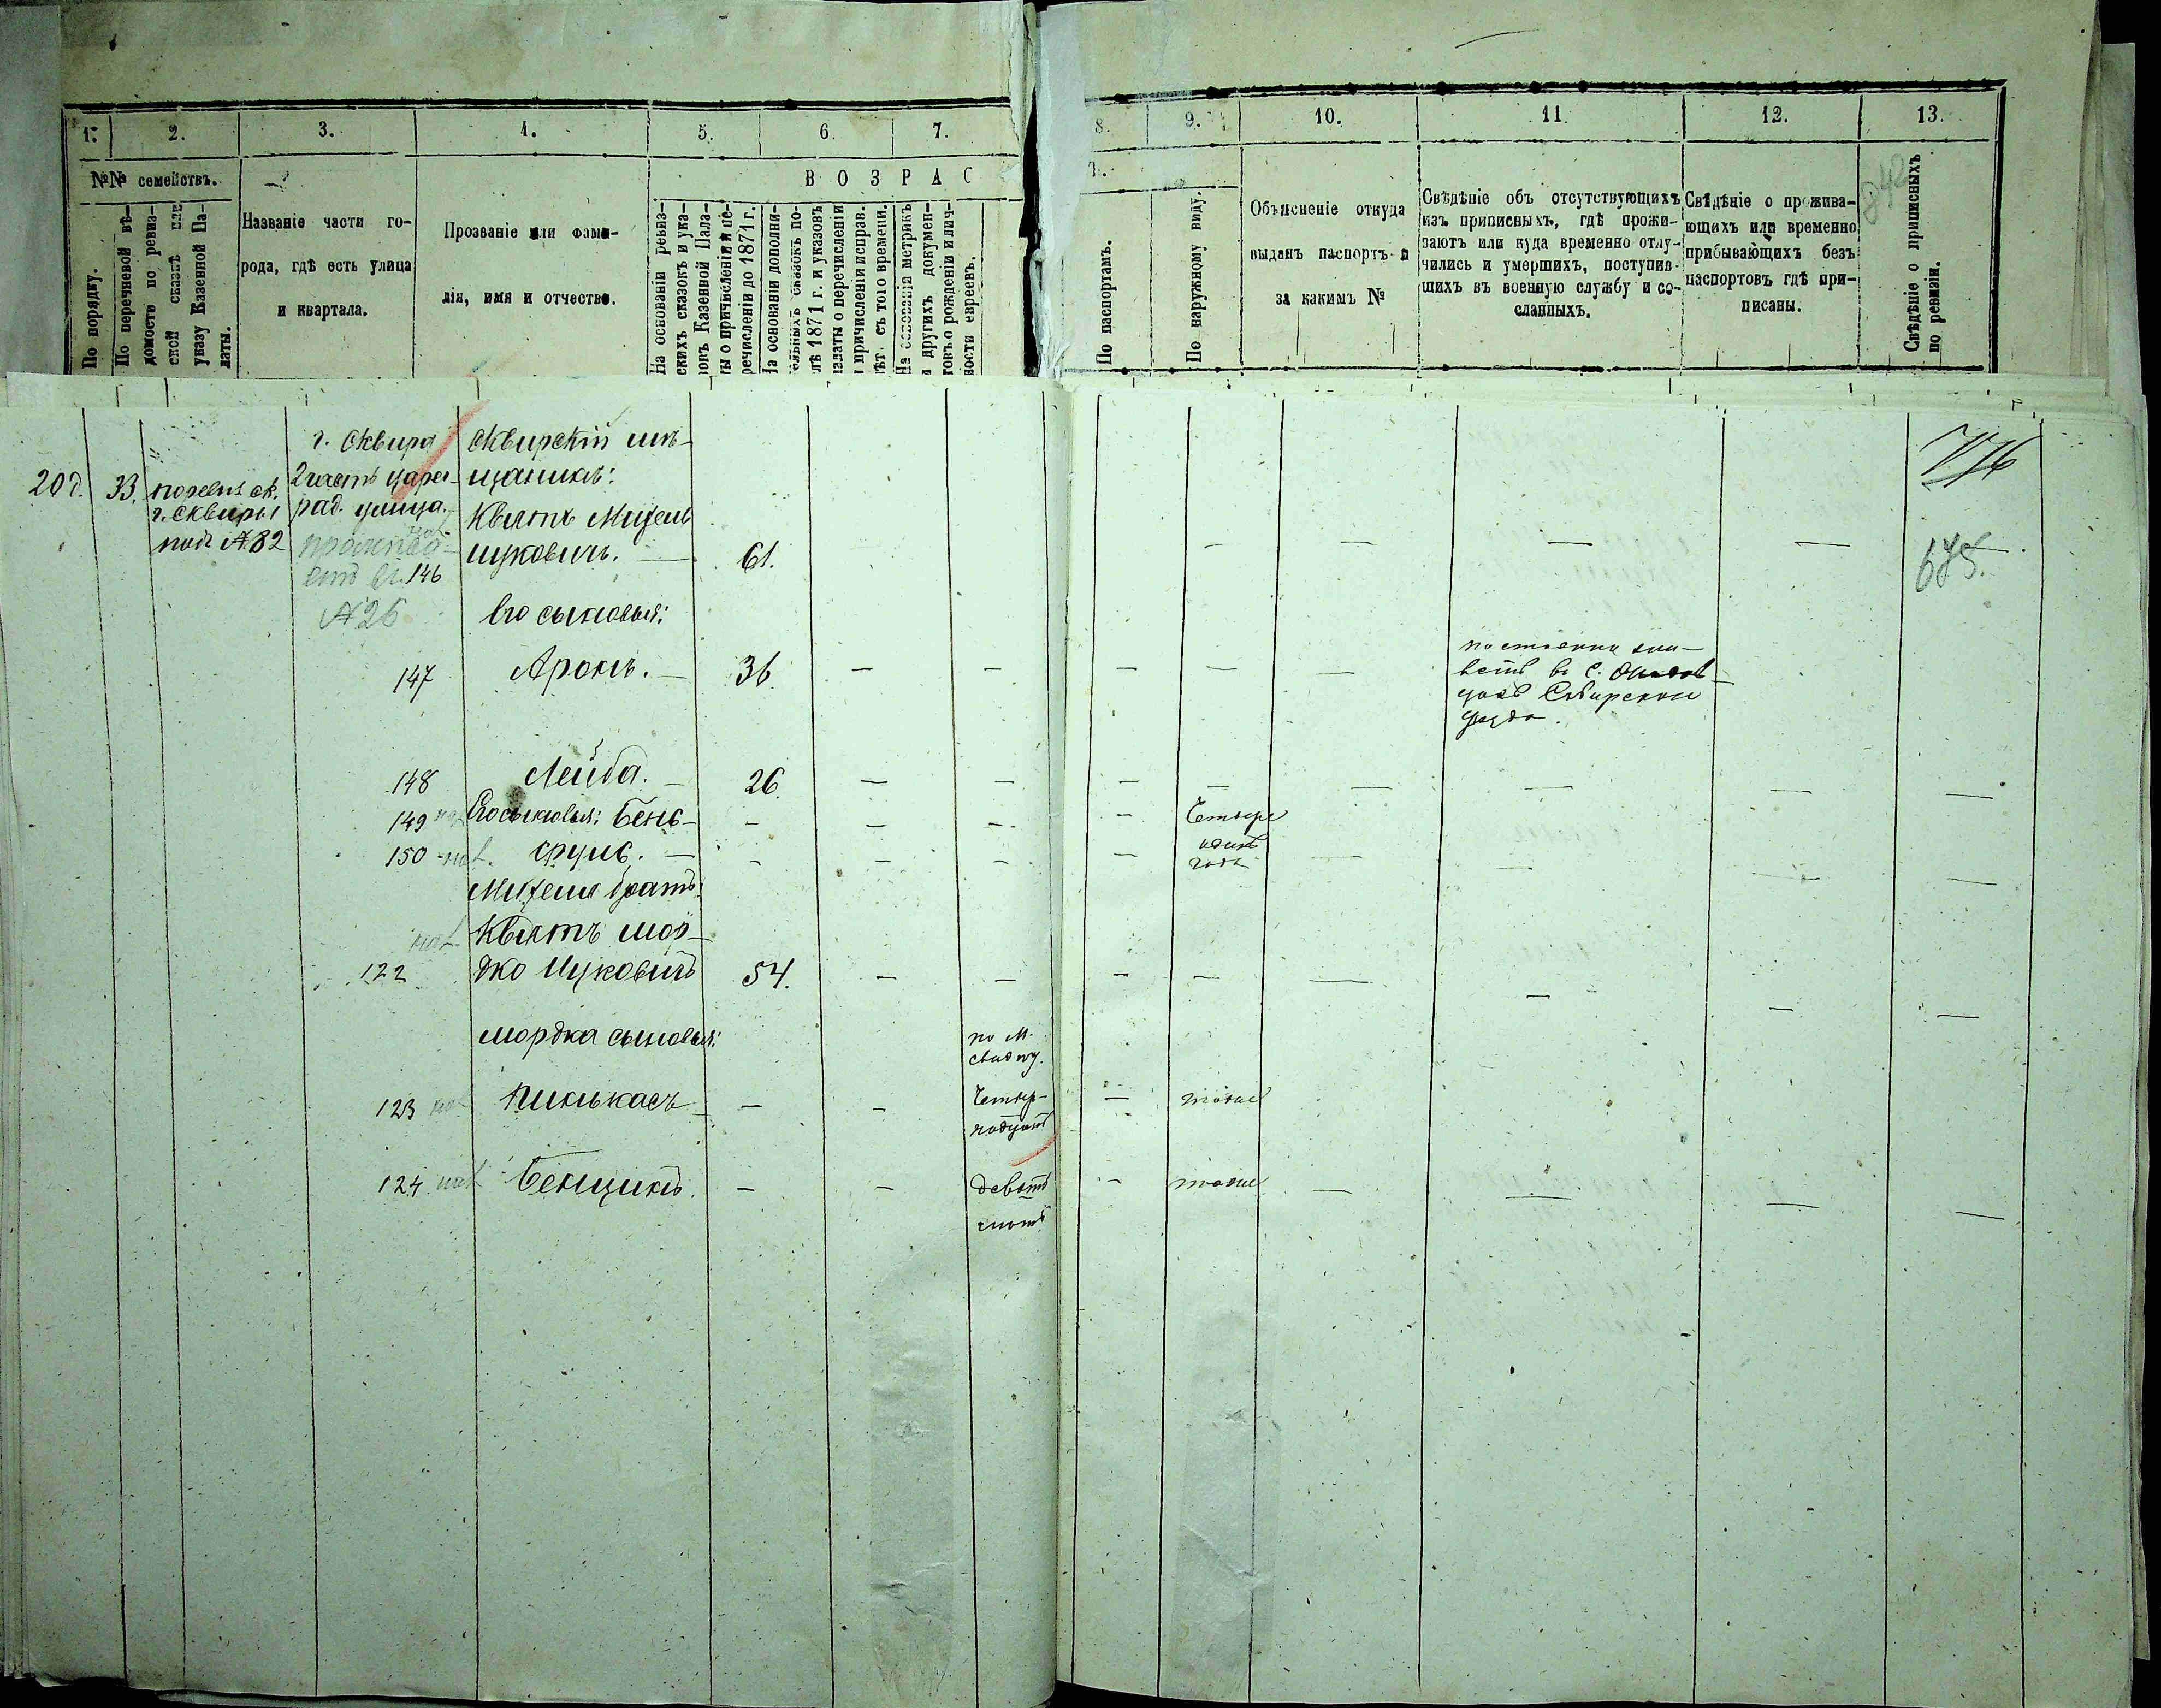 1.
2.
3.
4.
5.
6.
7.
№№ семействъ.
По порядку.
По перечневой вѣ-
домости по ревиз-
ской сказкѣ или
указу Казенной Па-
латы.
Названіе части го-
рода, гдѣ есть улица
и квартала.
Прозваніе или фами-
лія, имя и отчество.
ВОЗРАС
На основаніи ревиз-
скихъ сказокъ и ука-
зовъ Казенной Пала-
ты о причисленіи и пе-
речисленіи до 1871 г.
На основаніи дополни-
тельныхъ сказокъ по-
слѣ 1871 г. и указовъ
палаты о перечисленіи
и причисленіи исправ.
лѣт. съ того времени.
На основаніи метрикъ
и других документ-
товъ о рожденіи и лич-
ности евреевъ.
8.
9.
10.
11.
12.
13.
Т.
По паспортамъ.
По наружному виду.
Объясненіе откуда
выданъ паспортъ и
за какимъ №
Свѣдѣніе объ отсутствующихъ
изъ приписныхъ, гдѣ прожи-
ваютъ или куда временно отлу-
чились и умершихъ, поступив-
шихъ въ военную службу и со-
сланныхъ.
Свѣдѣніе о прожива-
ющихъ или временно
прибывающихъ безъ
паспортовъ гдѣ при-
писаны.
Свѣдѣніе о приписныхъ
по ревизіи.
842
20
33.
г. Сквиры
подъ № 82
г. Сквира
2 часть
рад. улица.
146
№ 26
Сквирскій мѣ-
щанинъ:
Квятъ Михель
Ицковичъ. —
61.
675.
Его сыновья:
147
Аронъ. —
36
148
Лейба. —
26
149
Его сыновья: Бень-
150
Сруль. —
Четыре
одинъ
года
Михеля братъ:
Квятъ Мор-
122
дко Ицковичъ
54.
Мордка сыновья:
по М.
123
Пинькасъ
Четыр-
надцать
тоже
124
Бенціинъ.
девять
лѣтъ
тоже
въ с.
Сквирскаго
уѣзда.